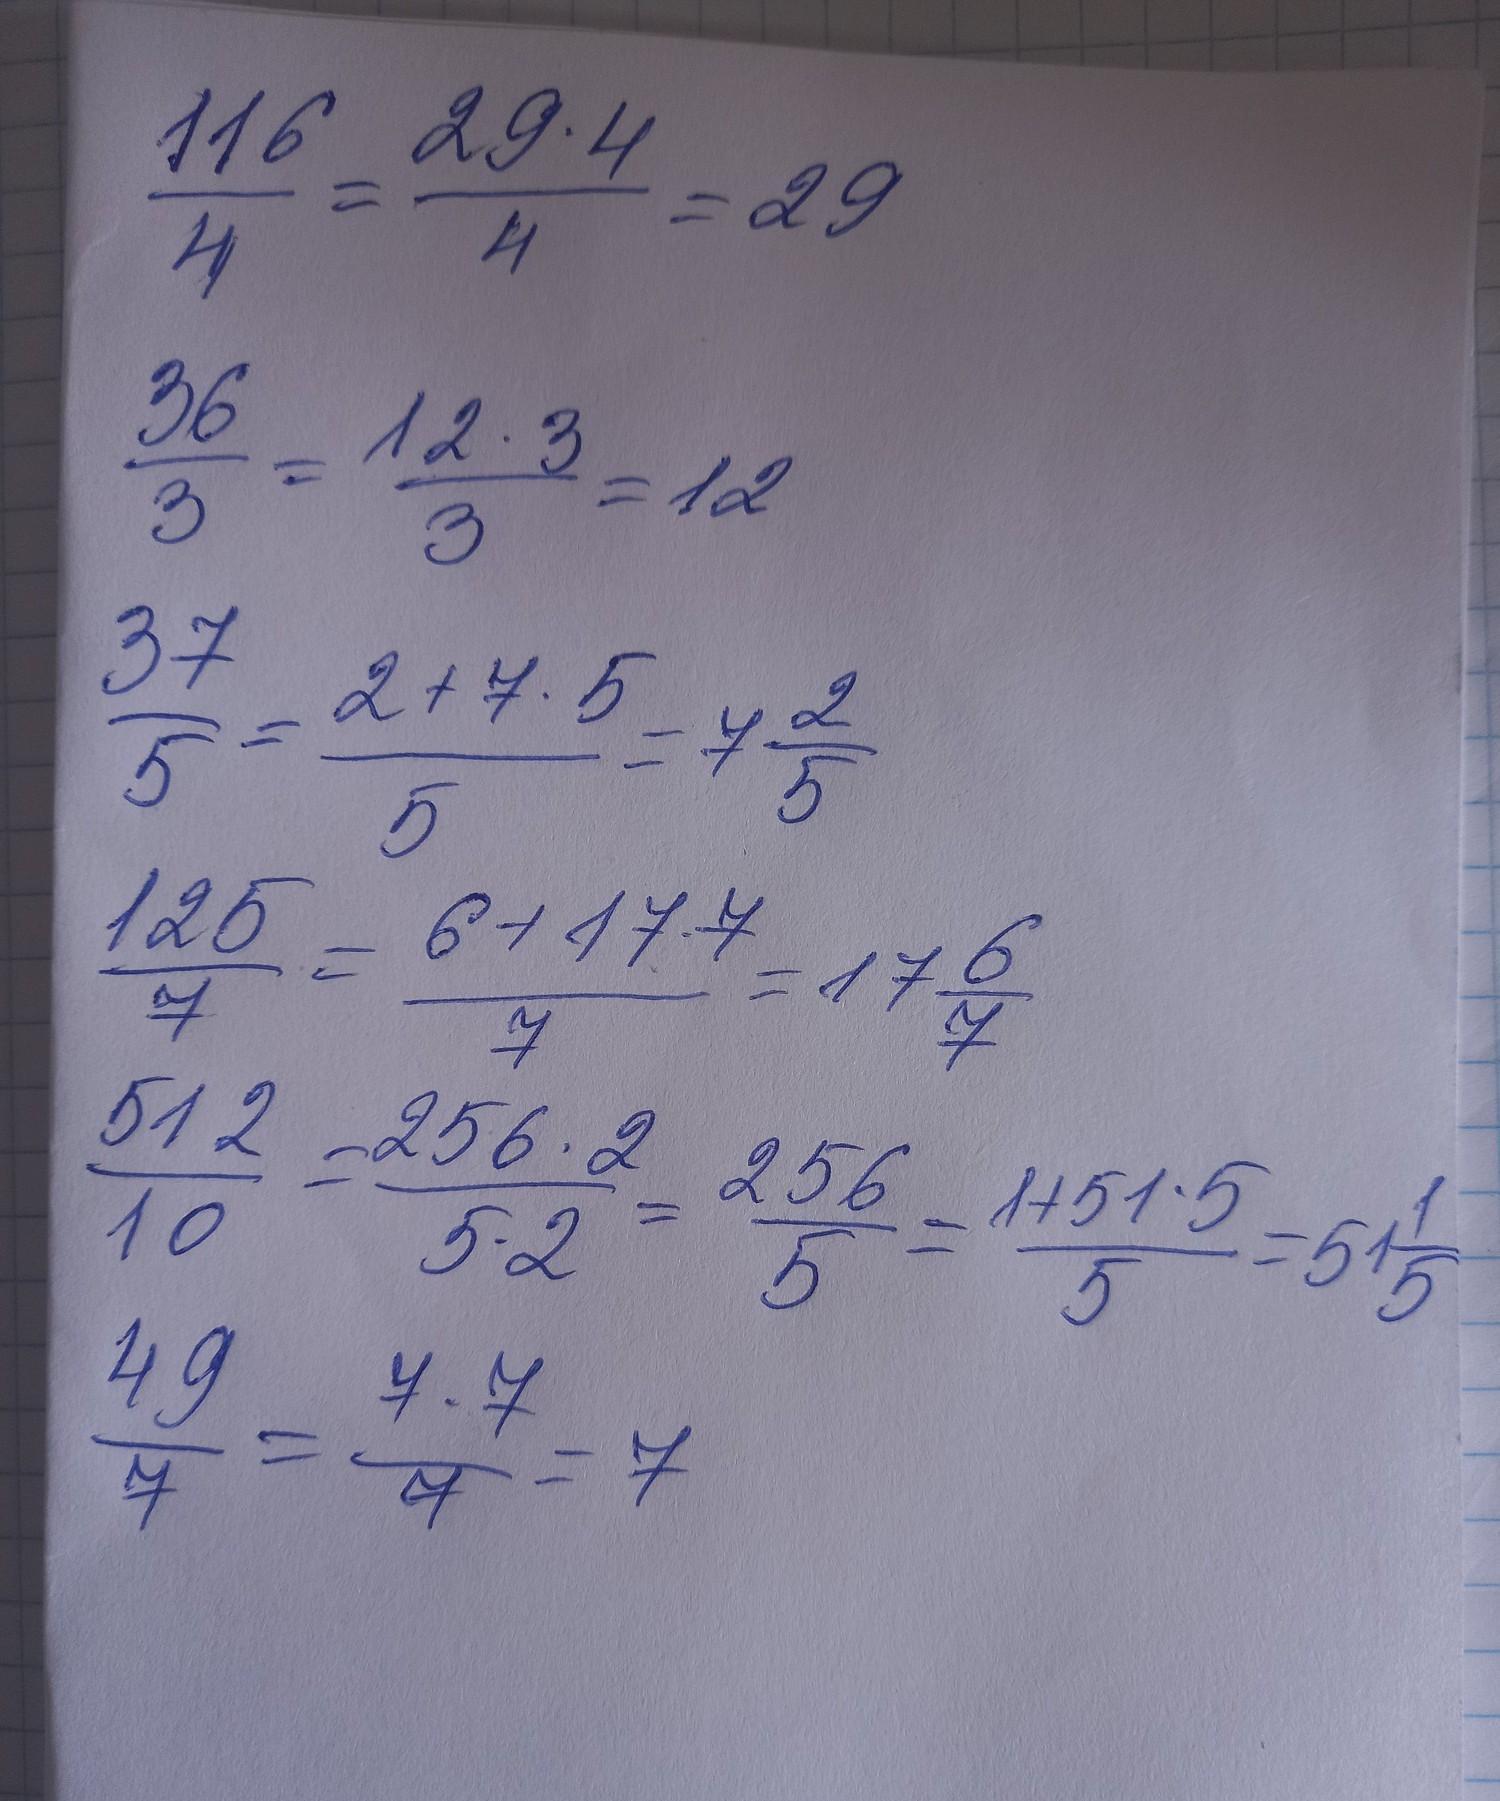 116/4 = 29·4/4 = 29
36/3 = 12·3/3 = 12
37/5 = 2+7·5/5 = 7 2/5
125/7 = 6+17·7/7 = 17 6/7
512/10 = 256·2/5·2 = 256/5 = 1+51·5/5 = 51 1/5
49/7 = 7·7/7 = 7